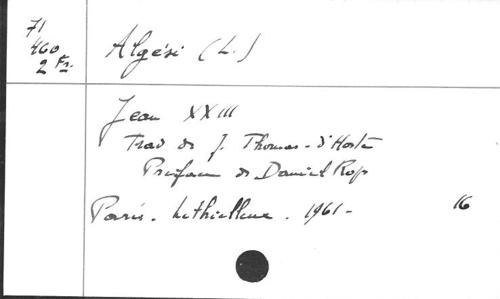 71
460
2 Fr.
Algisi (L.)
Jean XXIII
Trad de J. Thomas-d'Hoste
Preface de Daniel Rops
Paris. Lethielleux. 1961-
16